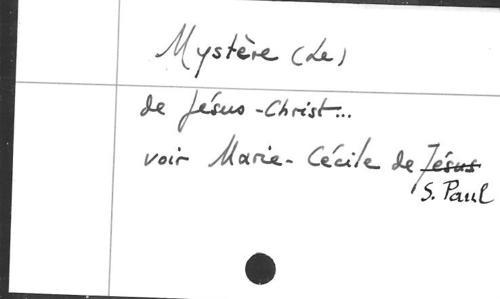 Mystère (Le)
de Jésus-Christ...
voir Marie-Cécile de Jésus
S. Paul